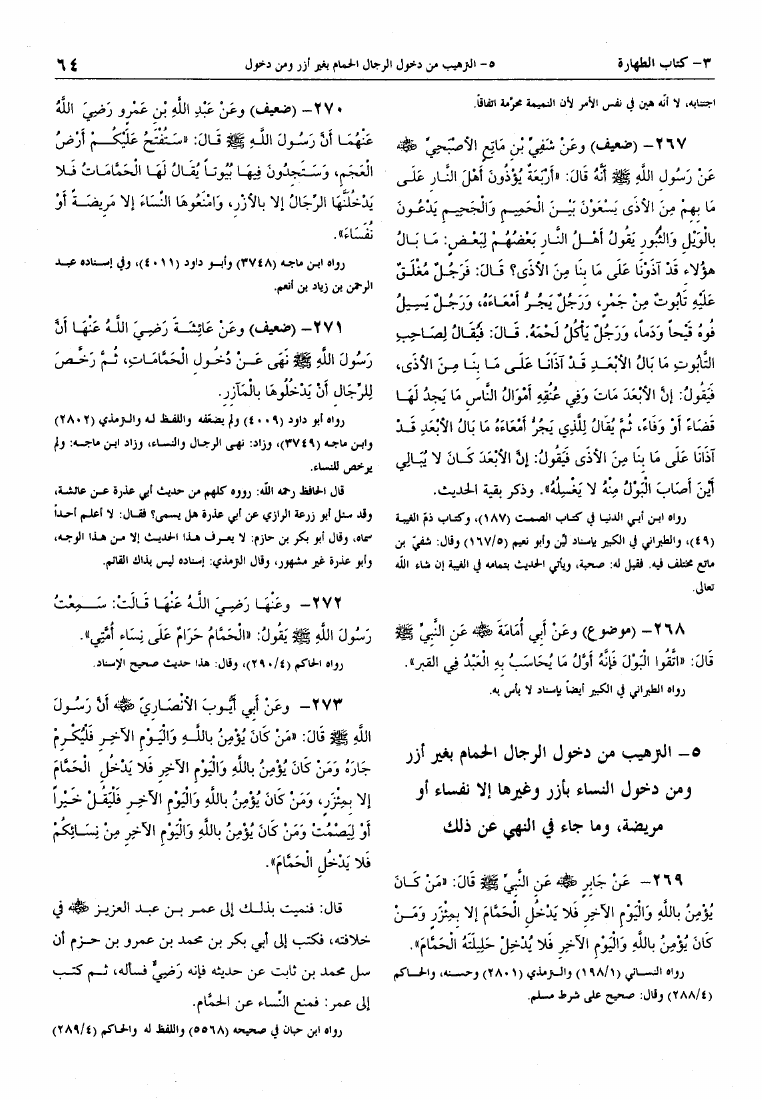 ٣- كتاب الطهارة
٥- الترهيب من دخول الرجال الحمام بغير أزر ومن دخول
٦٤
اجتنابه، لا أنّه هين في نفس الأمر لأن النميمة محرّمة اتفاقاً.
٢٦٧- (ضعيف) وعَنْ شَفِيِّ بْنِ مَاتِعٍ الأَصْبَحِيِّ ﵁
عَنْ رَسُولِ اللَّهِ ﷺ أَنَّهُ قَالَ: «أَرْبَعَةٌ يُؤْذُونَ أَهْلَ النَّارِ عَلَى
مَا بِهِمْ مِنَ الأَذَى يَسْعَوْنَ بَيْنَ الْحَمِيمِ وَالْجَحِيمِ يَدْعُونَ
بِالْوَيْلِ وَالثُّبُورِ يَقُولُ أَهْلُ النَّارِ بَعْضُهُمْ لِبَعْضٍ: مَا بَالُ
هؤُلاءِ قَدْ آذَوْنَا عَلَى مَا بِنَا مِنَ الأَذَى؟ قَالَ: فَرَجُلٌ مُغْلَقٌ
عَلَيْهِ تَابُوتٌ مِنْ جَمْرٍ، وَرَجُلٌ يَجُرُّ أَمْعَاءَهُ، وَرَجُلٌ يَسِيلُ
فُوهُ قَيْحاً وَدَماً، وَرَجُلٌ يَأْكُلُ لَحْمَهُ. قَالَ: فَيُقَالُ لِصَاحِبِ
التَّابُوتِ مَا بَالُ الأَبْعَدِ قَدْ آذَانَا عَلَى مَا بِنَا مِنَ الأَذَى،
فَيَقُولُ: إِنَّ الأَبْعَدَ مَاتَ وَفِي عُنُقِهِ أَمْوَالُ النَّاسِ مَا يَجِدُ لَهَا
قَضَاءً أَوْ وَفَاءً، ثُمَّ يُقَالُ لِلَّذِي يَجُرُّ أَمْعَاءَهُ مَا بَالُ الأَبْعَدِ قَدْ
آذَانَا عَلَى مَا بِنَا مِنَ الأَذَى فَيَقُولُ: إِنَّ الأَبْعَدَ كَانَ لا يُبَالِي
أَيْنَ أَصَابَ الْبَوْلُ مِنْهُ لا يَغْسِلُهُ». وذكر بقية الحديث.
رواه ابن أبي الدنيا في كتاب الصمت (١٨٧)، وكتاب ذمّ الغيبة
(٤٩)، والطبراني في الكبير بإسناد ليّن وأبو نعيم (١٦٧/٥) وقال: شفيّ بن
ماتع مختلف فيه. فقيل له: صحبة، ويأتي الحديث بتمامه في الغيبة إن شاء الله
تعالى.
٢٦٨- (موضوع) وعَنْ أَبِي أُمَامَةَ ﵁ عَنِ النَّبِيِّ ﷺ
قَالَ: «اتَّقُوا الْبَوْلَ فَإِنَّهُ أَوَّلُ مَا يُحَاسَبُ بِهِ الْعَبْدُ فِي القبر».
رواه الطبراني في الكبير أيضاً بإسناد لا بأس به.
٥- الترهيب من دخول الرجال الحمام بغير أزر
ومن دخول النساء بأزر وغيرها إلا نفساء أو
مريضة، وما جاء في النهي عن ذلك
٢٦٩- عَنْ جَابِرٍ ﵁ عَنِ النَّبِيِّ ﷺ قَالَ: «مَنْ كَانَ
يُؤْمِنُ بِاللَّهِ وَالْيَوْمِ الآخِرِ فَلا يَدْخُلِ الْحَمَّامَ إِلا بِمِئْزَرٍ وَمَنْ
كَانَ يُؤْمِنُ بِاللَّهِ وَالْيَوْمِ الآخِرِ فَلا يُدْخِلْ حَلِيلَتَهُ الْحَمَّامَ».
رواه النسائي (١٩٨/١) والترمذي (٢٨٠١) وحسنه، والحاكم
(٢٨٨/٤) وقال: صحيح على شرط مسلم.
٢٧٠- (ضعيف) وعَنْ عَبْدِ اللَّهِ بْنِ عَمْرٍو رَضِيَ اللَّهُ
عَنْهُمَا أَنَّ رَسُولَ اللَّهِ ﷺ قَالَ: «سَتُفْتَحُ عَلَيْكُمْ أَرْضُ
الْعَجَمِ، وَسَتَجِدُونَ فِيهَا بُيُوتاً يُقَالُ لَهَا الْحَمَّامَاتُ فَلا
يَدْخُلَنَّهَا الرِّجَالُ إِلا بِالأُزُرِ، وَامْنَعُوهَا النِّسَاءَ إِلا مَرِيضَةً أَوْ
نُفَسَاءَ».
رواه ابن ماجه (٣٧٤٨) وأبو داود (٤٠١١)، وفي إسناده عبد
الرحمن بن زياد بن أنعم.
٢٧١- (ضعيف) وعَنْ عَائِشَةَ رَضِيَ اللَّهُ عَنْهَا أَنَّ
رَسُولَ اللَّهِ ﷺ نَهَى عَنْ دُخُولِ الْحَمَّامَاتِ، ثُمَّ رَخَّصَ
لِلرِّجَالِ أَنْ يَدْخُلُوهَا بِالْمَآزِرِ.
رواه أبو داود (٤٠٠٩) ولم يضعّفه واللفظ له والترمذي (٢٨٠٢)
وابن ماجه (٣٧٤٩)، وزاد: نهى الرجال والنساء، وزاد ابن ماجه: ولم
يرخص للنساء.
قال الحافظ رحمه الله: رووه كلهم من حديث أبي عذرة عن عائشة،
وقد سئل أبو زرعة الرازي عن أبي عذرة هل يسمى؟ فقال: لا أعلم أحداً
سماه، وقال أبو بكر بن حازم: لا يعرف هذا الحديث إلا من هذا الوجه،
وأبو عذرة غير مشهور، وقال الترمذي: إسناده ليس بذاك القائم.
٢٧٢- وعَنْهَا رَضِيَ اللَّهُ عَنْهَا قَالَتْ: سَمِعْتُ
رَسُولَ اللَّهِ ﷺ يَقُولُ: «الْحَمَّامُ حَرَامٌ عَلَى نِسَاءِ أُمَّتِي».
رواه الحاكم (٢٩٠/٤)، وقال: هذا حديث صحيح الإسناد.
٢٧٣- وعَنْ أَبِي أَيُّوبَ الأَنْصَارِيِّ ﵁ أَنَّ رَسُولَ
اللَّهِ ﷺ قَالَ: «مَنْ كَانَ يُؤْمِنُ بِاللَّهِ وَالْيَوْمِ الآخِرِ فَلْيُكْرِمْ
جَارَهُ وَمَنْ كَانَ يُؤْمِنُ بِاللَّهِ وَالْيَوْمِ الآخِرِ فَلا يَدْخُلِ الْحَمَّامَ
إِلا بِمِئْزَرٍ، وَمَنْ كَانَ يُؤْمِنُ بِاللَّهِ وَالْيَوْمِ الآخِرِ فَلْيَقُلْ خَيْراً
أَوْ لِيَصْمُتْ وَمَنْ كَانَ يُؤْمِنُ بِاللَّهِ وَالْيَوْمِ الآخِرِ مِنْ نِسَائِكُمْ
فَلا يَدْخُلِ الْحَمَّامَ».
قال: فنميت بذلك إلى عمر بن عبد العزيز ﵁ في
خلافته، فكتب إلى أبي بكر بن محمد بن عمرو بن حزم أن
سل محمد بن ثابت عن حديثه فإنه رَضِيٌّ فسأله، ثم كتب
إلى عمر: فمنع النِّساء عن الحمَّام.
رواه ابن حبان في صحيحه (٥٥٦٨) واللفظ له والحاكم (٢٨٩/٤)